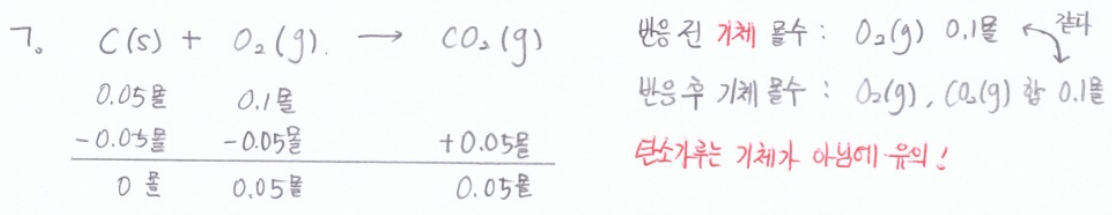 ㄱ. C(s) + O₂(g). → CO₂(g)
0.05몰 0.1몰
-0.05몰 -0.05몰 +0.05몰
0몰 0.05몰 0.05몰
반응 전 기체 몰수 : O₂(g) 0.1몰
같다
반응 후 기체 몰수 : O₂(g), CO₂(g) 합 0.1몰
탄소가루는 기체가 아님에 유의!